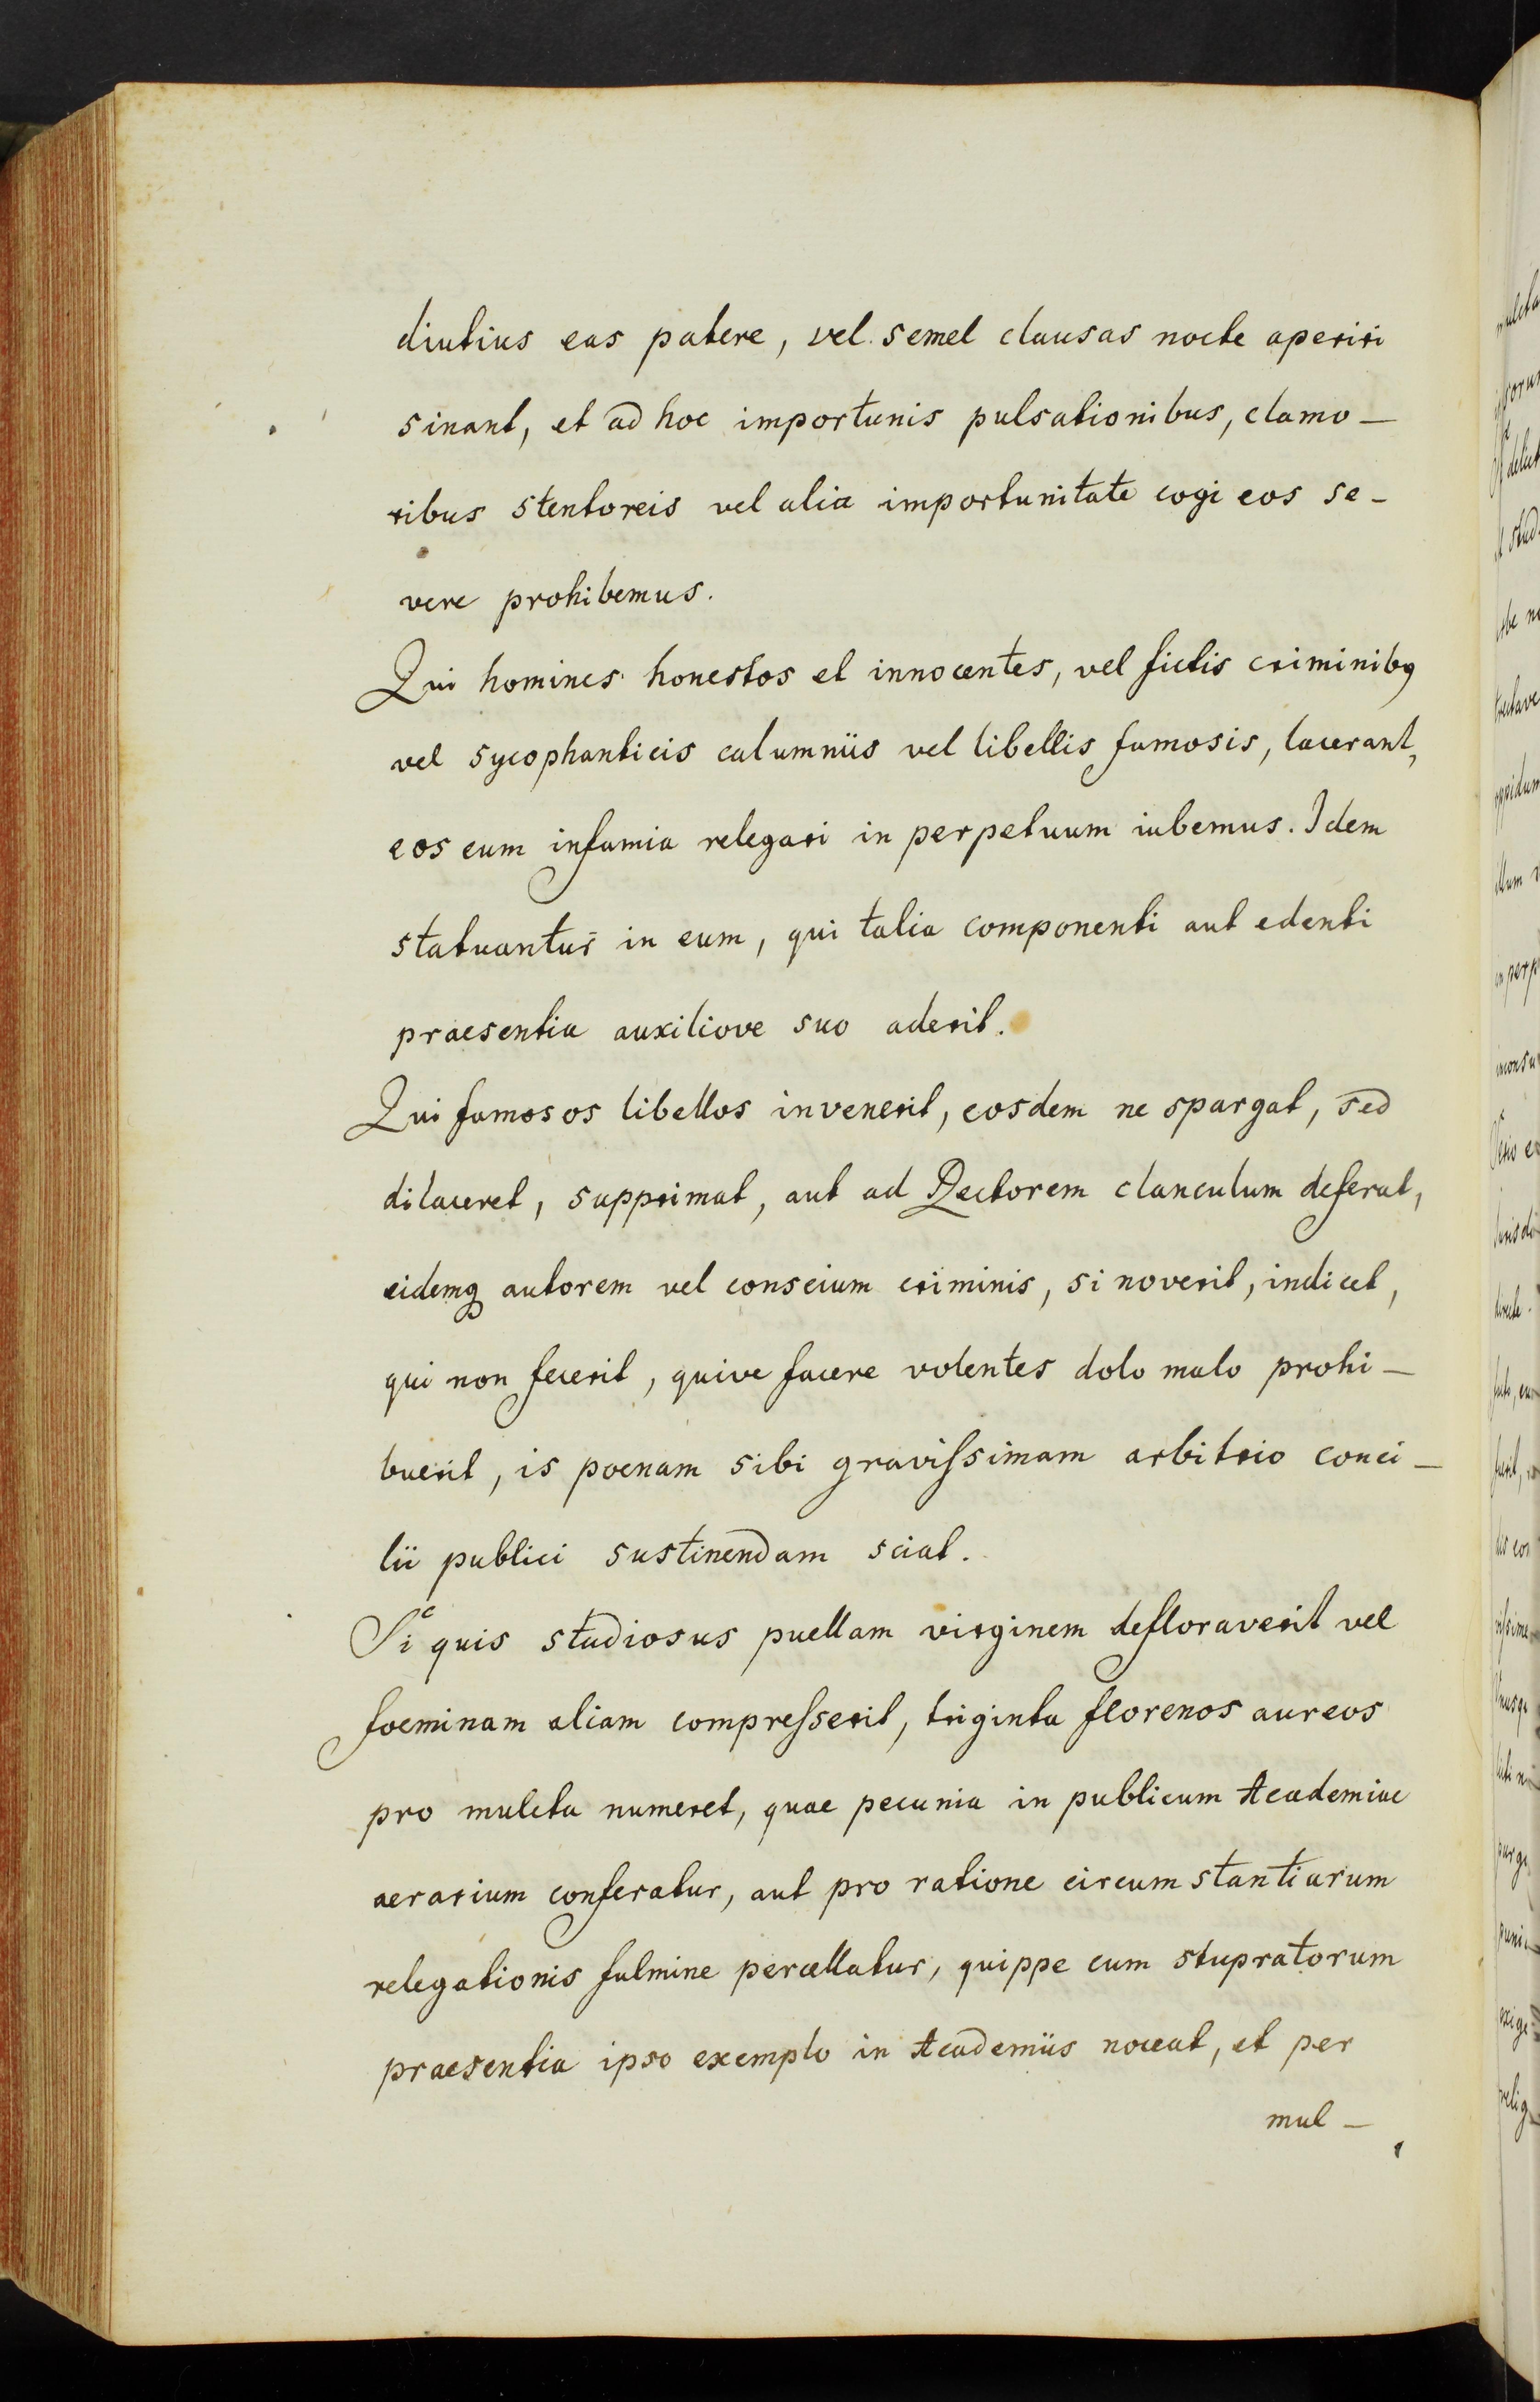 diutius eas patere, vel semel clausas nocte aperiri
sinant, et ad hoc importunis pulsationibus, clamo-
ribus stentoreis vel alia importunitate cogi eos se-
vere prohibemus.
Qui homines honestos et innocentes, vel fictis criminibq
vel sycophanticis calumniis vel libellis famosis, lacerant,
eos cum infamia relegari in perpetuum iubemus. Idem
statuantur in eum, qui talia componenti aut edenti
praesentia auxiliove suo aderit.
Qui famosos libellos invenerit, eosdem ne spargat, sed
dilaceret, supprimat, aut ad Rectorem clanculum deferat,
eidemq autorem vel conscium criminis, si noverit, indicet,
qui non fecerit, quive facere volentes dolo malo prohi-
buerit, is poenam sibi graviſsimam arbitrio conci-
lii publici sustinendam sciat.
Si quis studiosus puellam virginem defloraverit vel
foeminam aliam compreſserit, triginta florenos aureos
pro mulcta numeret, quae pecunia in publicum Academiae
aerarium conferatur, aut pro ratione circumstantiarum
relegationis fulmine percellatur, quippe cum stupratorum
praesentia ipso exemplo in Academiis noceat, et per
mul-